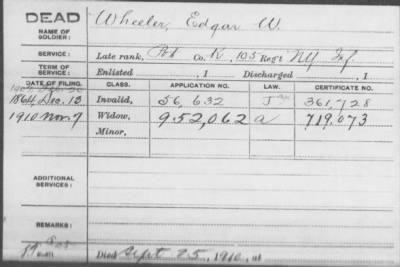 DEAD
NAME OF SOLDIER: Wheeler, Edgar W.
SERVICE: Late rank, Co. K, 105 Reg't NY Inf
TERM OF SERVICE: Enlisted , 1 Discharged , 1
DATE OF FILING. CLASS. APPLICATION NO. LAW. CERTIFICATE NO.
1864 Dec. 13 Invalid, 56,632 361,728
1910 Nov. 9 Widow, 952,062 a 719,073
Minor,
ADDITIONAL SERVICES:
REMARKS:
Died Sept 25, 1910, at